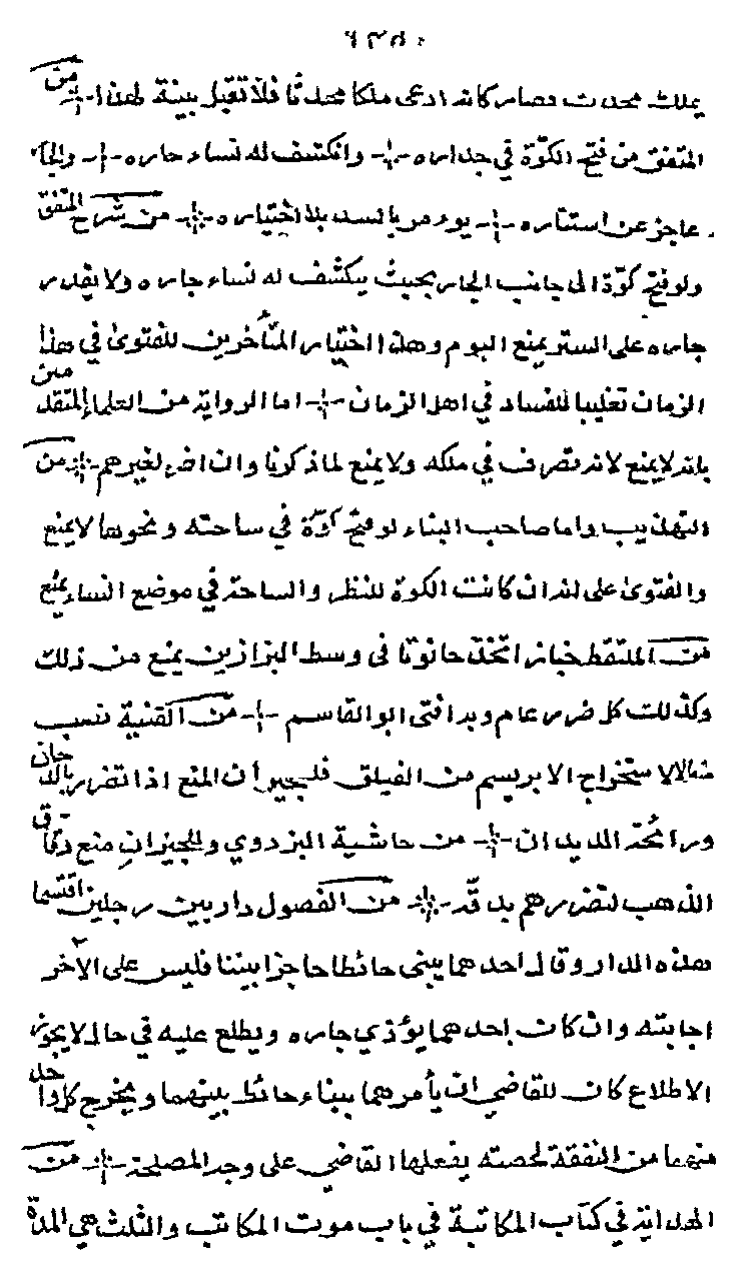 يملك محدث فصار كانه ادعى ملكا محدثا فلا تقبل بينة لهذا من
المتفق من فتح الكوّة في جداره وانكشف له نساء جاره والجار
عاجز عن استتاره يؤمر بالسد بلا اختياره من شرح المتفق
ولو فتح كوّة الى جانب الجار بحيث يكشف له نساء جاره ولا يقدر
جاره على الستر يمنع اليوم وهذا اختيار المتأخرين للفتوى في هذا
الزمان تغليبا للفساد في اهل الزمان اما الرواية من العلماء المتقدمين
بانه لا يمنع لانه تصرف في ملكه ولا يمنع لما ذكرنا وان اضر لغيرهم من
التهذيب واما صاحب البناء لو فتح كوّة في ساحته ونحوها لا يمنع
والفتوى على انه ان كانت الكوة للنظر والساحة في موضع النساء يمنع
من الملتقط خباز اتخذ حانوتا في وسط البزازين يمنع من ذلك
وكذلك كل ضرر عام وبه افتى ابو القاسم من القنية نصب
لاستخراج الابريسم من الفيلق فللجيران المنع اذا تضرروا بالدخان
ورائحة الديدان من حاشية البزدوي وللجيران منع دقاق
الذهب لتضررهم بدقّه من الفصول دار بين رجلين اقتسما
هذه الدار وقال احدهما يبنى حائطا حاجزا بيننا فليس على الآخر
اجابته وان كان احدهما يؤذي جاره ويطلع عليه في حال لا يجوز
الاطلاع كان للقاضي ان يأمرهما ببناء حائط بينهما ويخرج كل واحد
منهما من النفقة لحصته يفعلها القاضي على وجه المصلحة من
الهداية في كتاب المكاتبة في باب موت المكاتب والثلث هي المدة